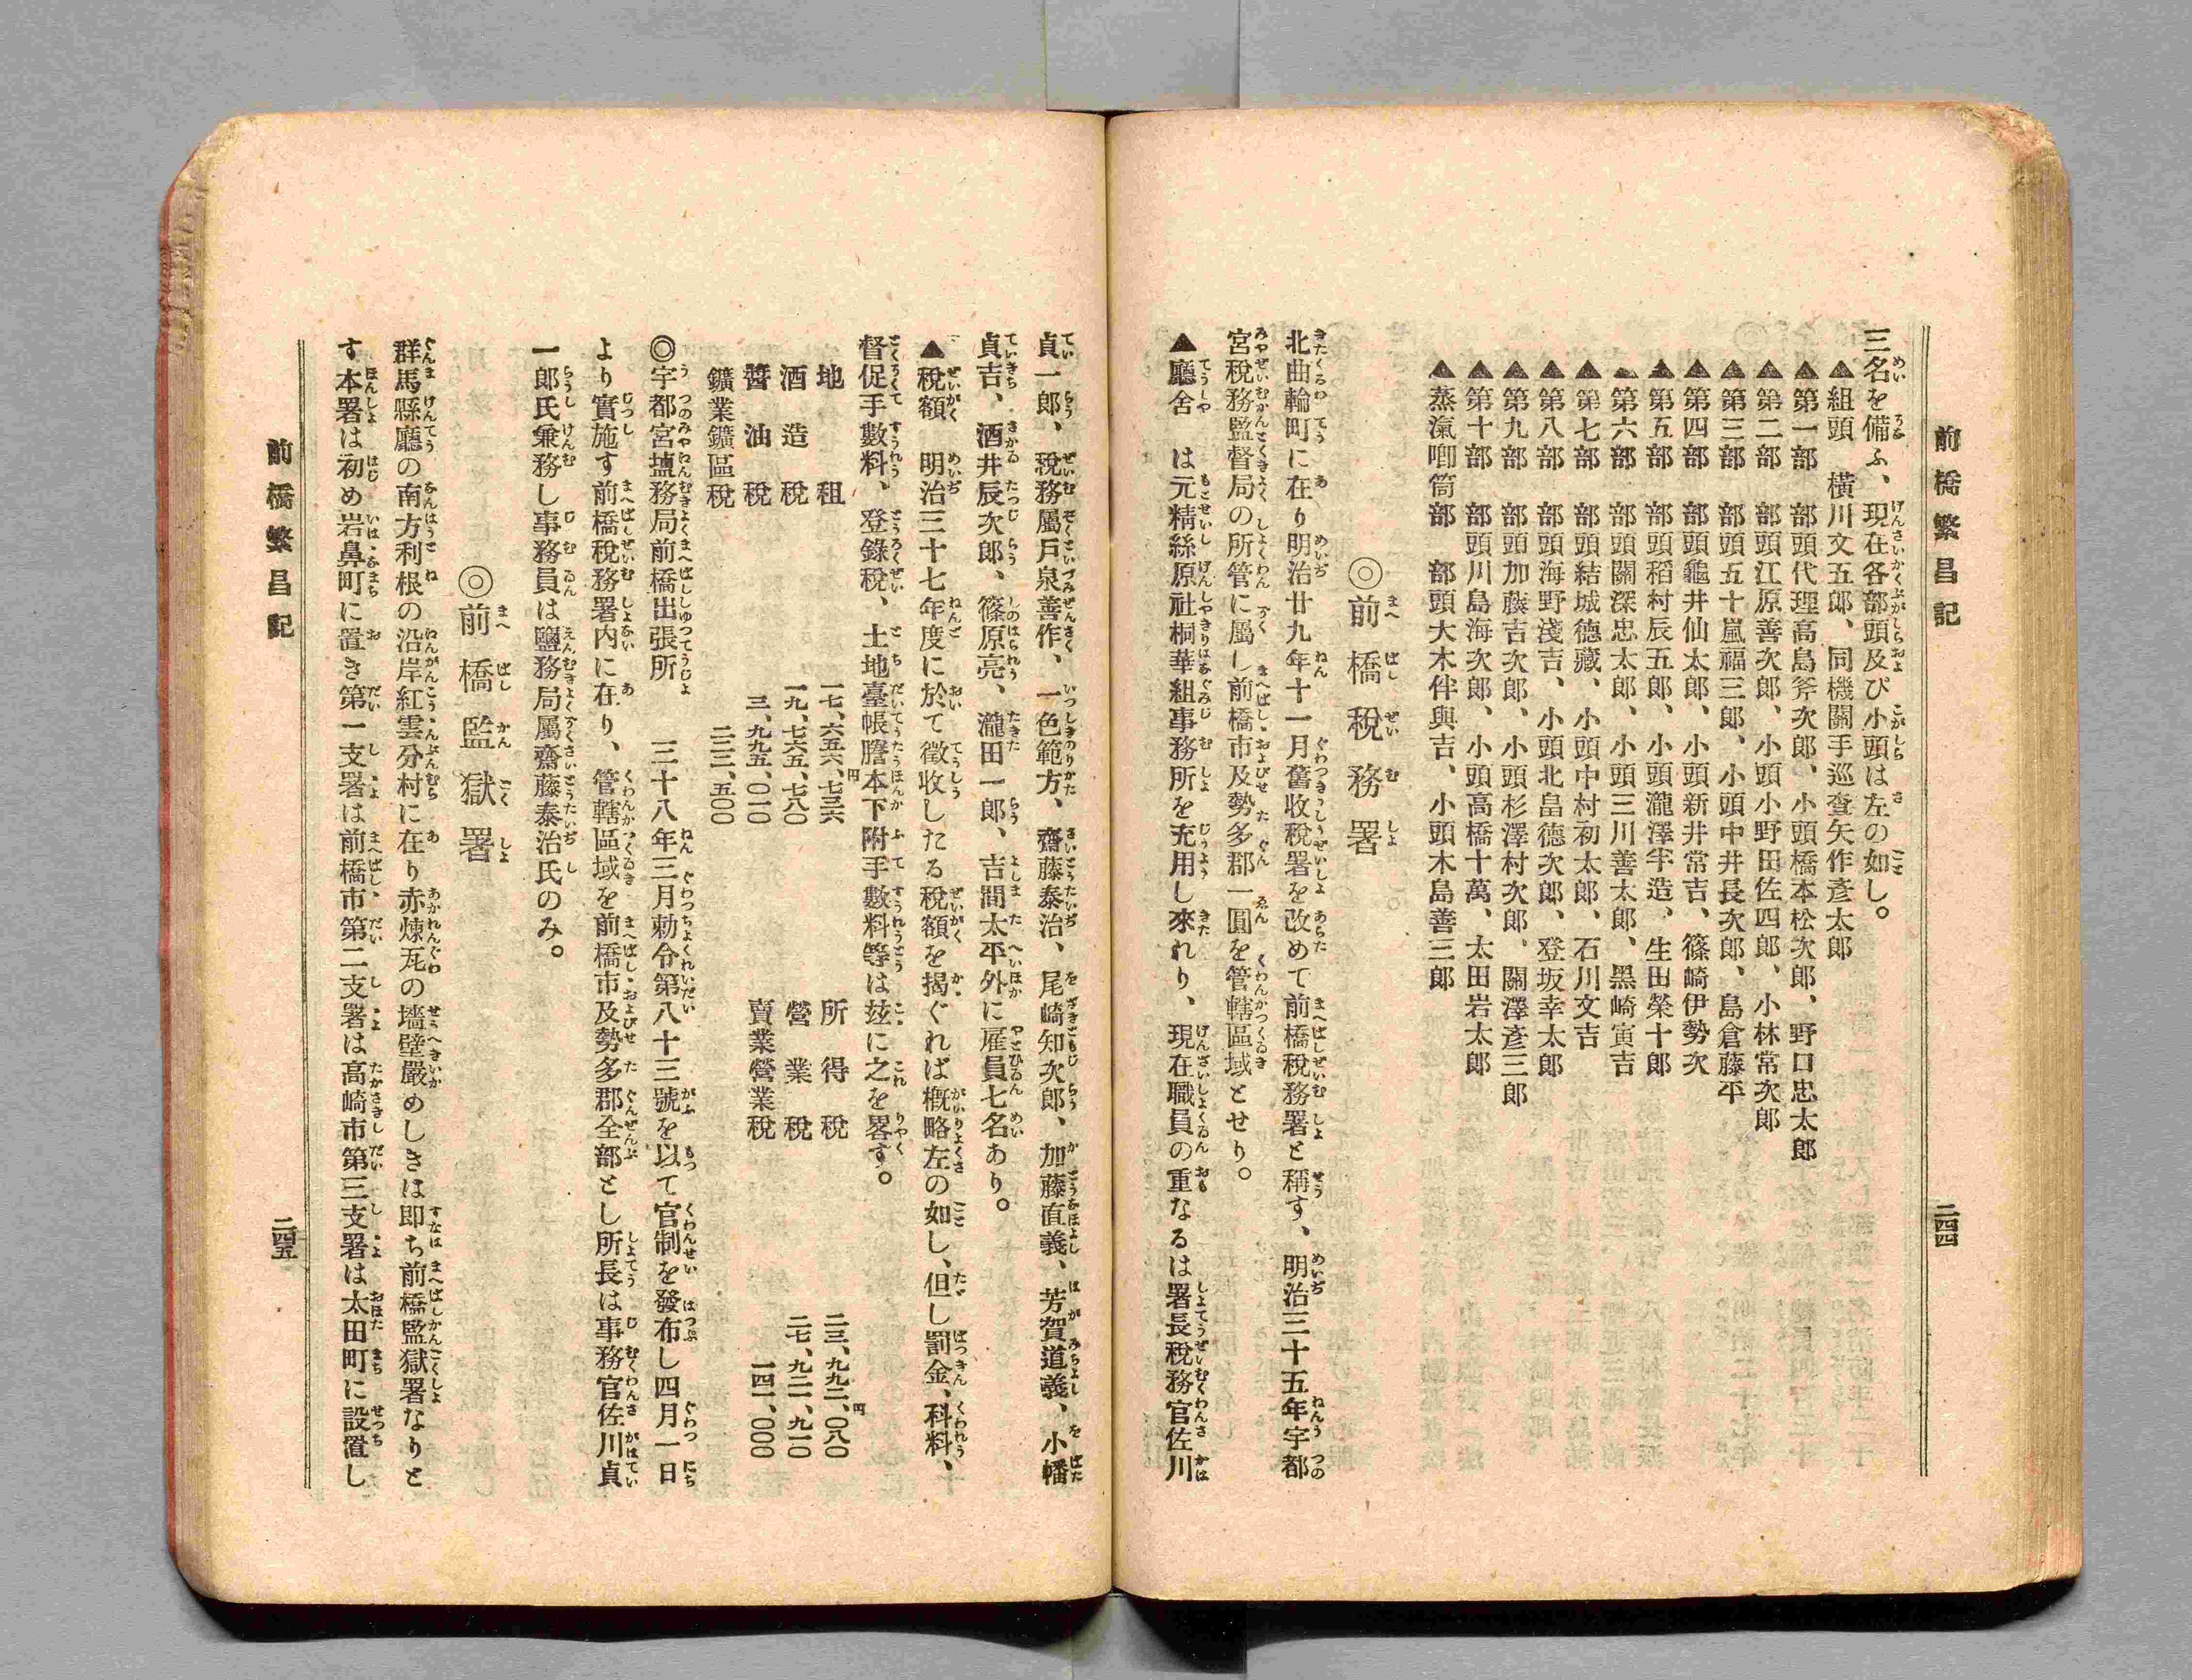 前橋繁昌記
二四四
三名を備ふ、現在各部頭及び小頭は左の如し。
▲組頭　橫川文五郎、同機關手巡査矢作彥太郎
▲第一部　部頭代理高島斧次郎、小頭橋本松次郎、野口忠太郎
▲第二部　部頭江原善次郎、小頭小野田佐四郎、小林常次郎
▲第三部　部頭五十嵐福三郎、小頭中井長次郎、島倉藤平
▲第四部　部頭龜井仙太郎、小頭新井常吉、篠崎伊勢次
▲第五部　部頭稻村辰五郎、小頭瀧澤半造、生田榮十郎
▲第六部　部頭關深忠太郎、小頭三川善太郎、黑崎寅吉
▲第七部　部頭結城德藏、小頭中村初太郎、石川文吉
▲第八部　部頭海野淺吉、小頭北畠德次郎、登坂幸太郎
▲第九部　部頭加藤吉次郎、小頭杉澤村次郎、關澤彥三郎
▲第十部　部頭川島海次郎、小頭高橋十萬、太田岩太郎
▲蒸瀛喞筒部　部頭大木伴與吉、小頭木島善三郎
◎前橋稅務署
北曲輪町に在り明治廿九年十一月舊收稅署を改めて前橋稅務署と稱す、明治三十五年宇都
宮稅務監督局の所管に屬し前橋市及勢多郡一圓を管轄區域とせり。
▲廳舍　は元精絲原社桐華組事務所を充用し來れり、現在職員の重なるは署長稅務官佐川
貞一郎、稅務屬戸泉善作、一色範方、齋藤泰治、尾崎知次郎、加藤直義、芳賀道義、小幡
貞吉、酒井辰次郎、篠原亮、瀧田一郎、吉間太平外に雇員七名あり。
▲稅額　明治三十七年度に於て徵收したる稅額を揭ぐれば概略左の如し、但し罰金、科料、
督促手數料、登錄稅、土地臺帳謄本下附手數料等は玆に之を畧す。
地租　一七、六五六、七三六円　所得稅　二三、九九二、〇八〇円
酒造稅　一九、七六五、七八〇　營業稅　二七、九二一、九一〇
醬油稅　三、九九五、〇一〇　賣業營業稅　一四一、〇〇〇
鑛業鑛區稅　二二三、五〇〇
◎宇都宮塩務局前橋出張所　三十八年三月勅令第八十三號を以て官制を發布し四月一日
より實施す前橋稅務署內に在り、管轄區域を前橋市及勢多郡全部とし所長は事務官佐川貞
一郎氏兼務し事務員は鹽務局屬齋藤泰治氏のみ。
◎前橋監獄署
群馬縣廳の南方利根の沿岸紅雲分村に在り赤煉瓦の墻壁嚴めしきは即ち前橋監獄署なりと
す本署は初め岩鼻町に置き第一支署は前橋市第二支署は高崎市第三支署は太田町に設置し
前橋繁昌記
二四五